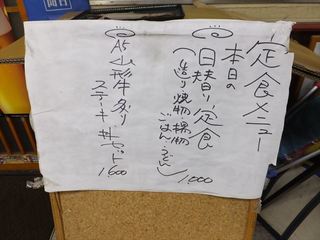 定食メニュー
本日の
日替り定食
(造り 焼物 揚物
ごはん・うどん)
1,000
A5山形牛炙り
ステーキ丼セット
1,600